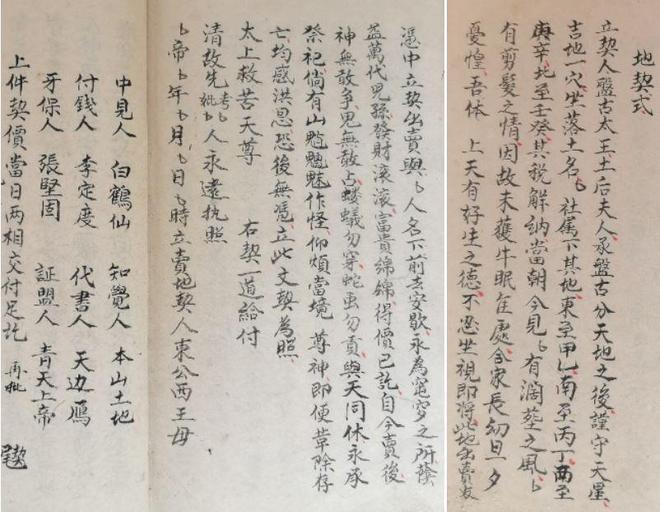 地契式
立契人盤古太王土后夫人承盤古分天地之後謹守天星
吉地一穴坐落土名〻社属下其地東至甲乙南至丙丁西至
庚辛北至壬癸其税解納當朝今見〻有濶塟之風〻
有剪髮之情因故未獲牛眠在處合家長幼旦夕
憂惶吾体 上天有好生之德不忍坐視即將此地出賣友
憑中立契出賣與〻人名下前去安歇永為窀穸之所蔭
益萬代児孫發財滚滚富貴綿綿得價已訖自今賣後
神無敢争鬼無敢占蝼蟻勿穿蛇虫勿責與天同休永承
祭祀倘有山魈魍魅作怪仰煩當境 尊神即便革除存
亡均感洪恩恐後無憑立此文契為照
太上救苦天尊 右契一道給付
清故先考妣〻人永遠执照
〻帝〻年〻月〻日〻時立賣地契人東公西王母
中見人 白鶴仙 知覺人 本山土地
付錢人 李定度 代書人 天边雁
牙保人 張堅固 証盟人 青天上帝
上件契價當日两相交付足訖 再批 契